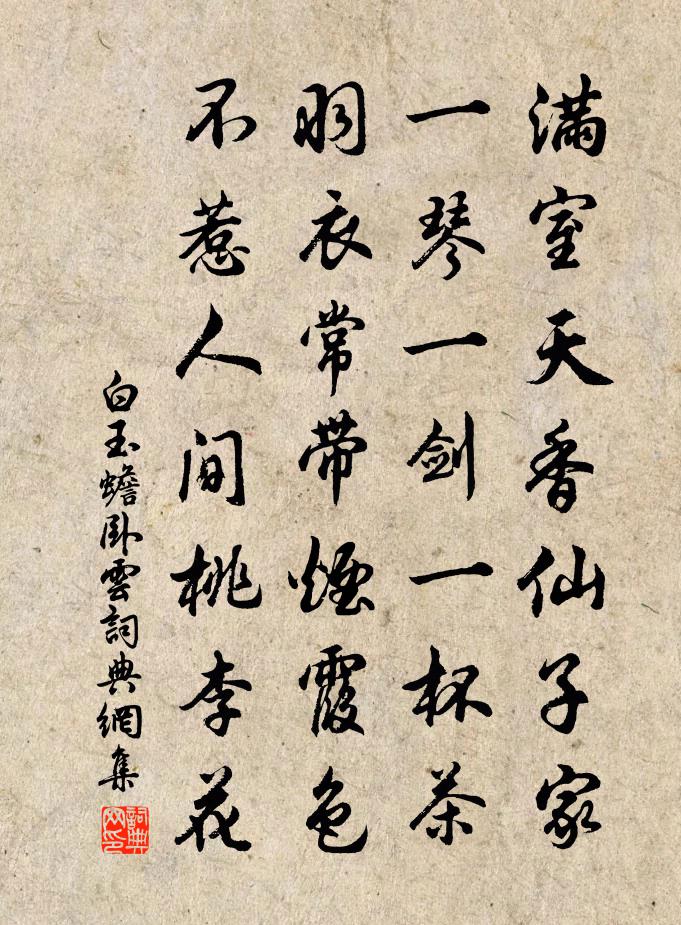 滿室天香仙子家
一琴一劍一杯茶
羽衣常帶煙霞色
不惹人间桃李花
白玉蟾卧雲詞典網集
詞典网印